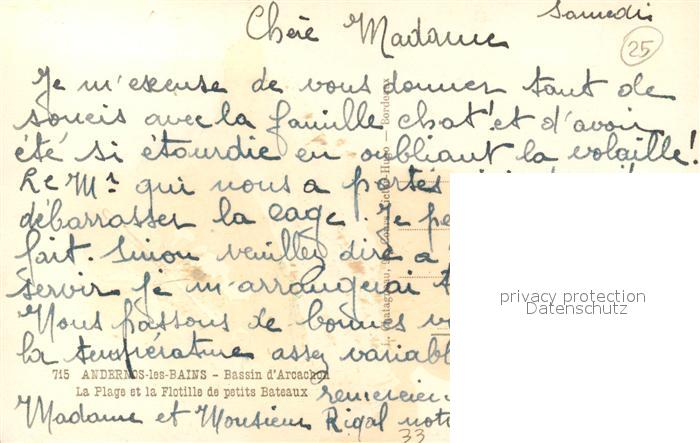 Samedi
Chère Madame
25
Je m'excuse de vous donner tant de
soucis avec la famille chat et d'avoir
été si étourdie en oubliant la volaille!
Le Mr qui nous a portés
débarrasser la cage. Je pe
fait. Sinon veuillez dire à
servir je m'arrangerai
Nous passons de bonnes v
la température assez variabl
715 ANDERNOS-les-BAINS - Bassin d'Arcachon
La Plage et la Flotille de petits Bateaux
remercien
Madame et Monsieur Rigal not
33
Victor-Hugo — Bordeaux
privacy protection
Datenschutz